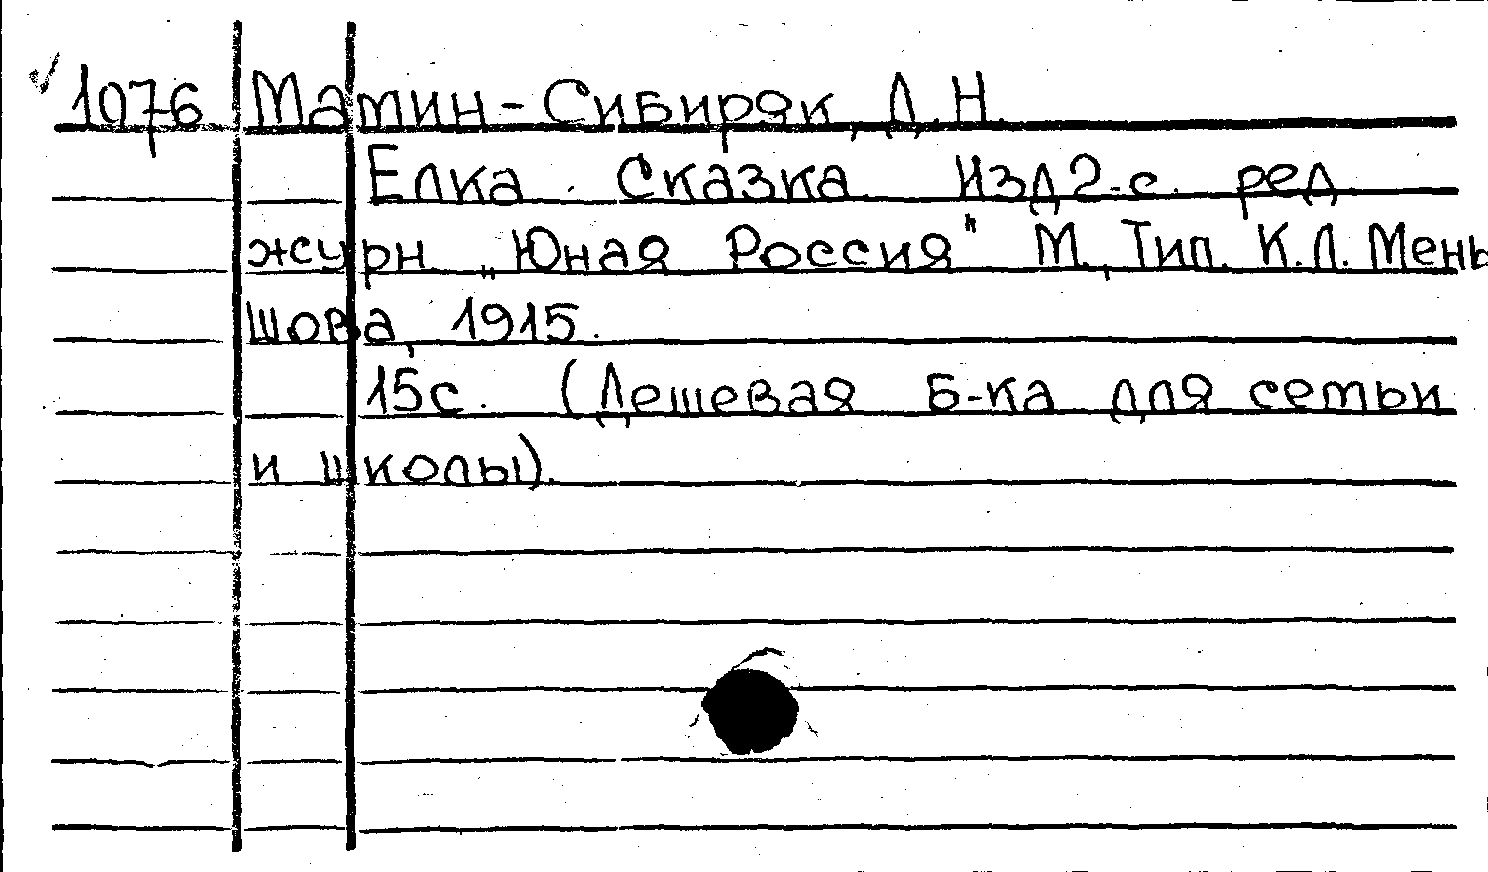 ✓ 1076 Мамин-Сибиряк, Д.Н.
Елка. Сказка. Изд 2-е. ред
журн. „Юная Россия" М., Тип. К.Л. Мень
шова, 1915.
15с. (Дешевая Б-ка для семьи
и школы).